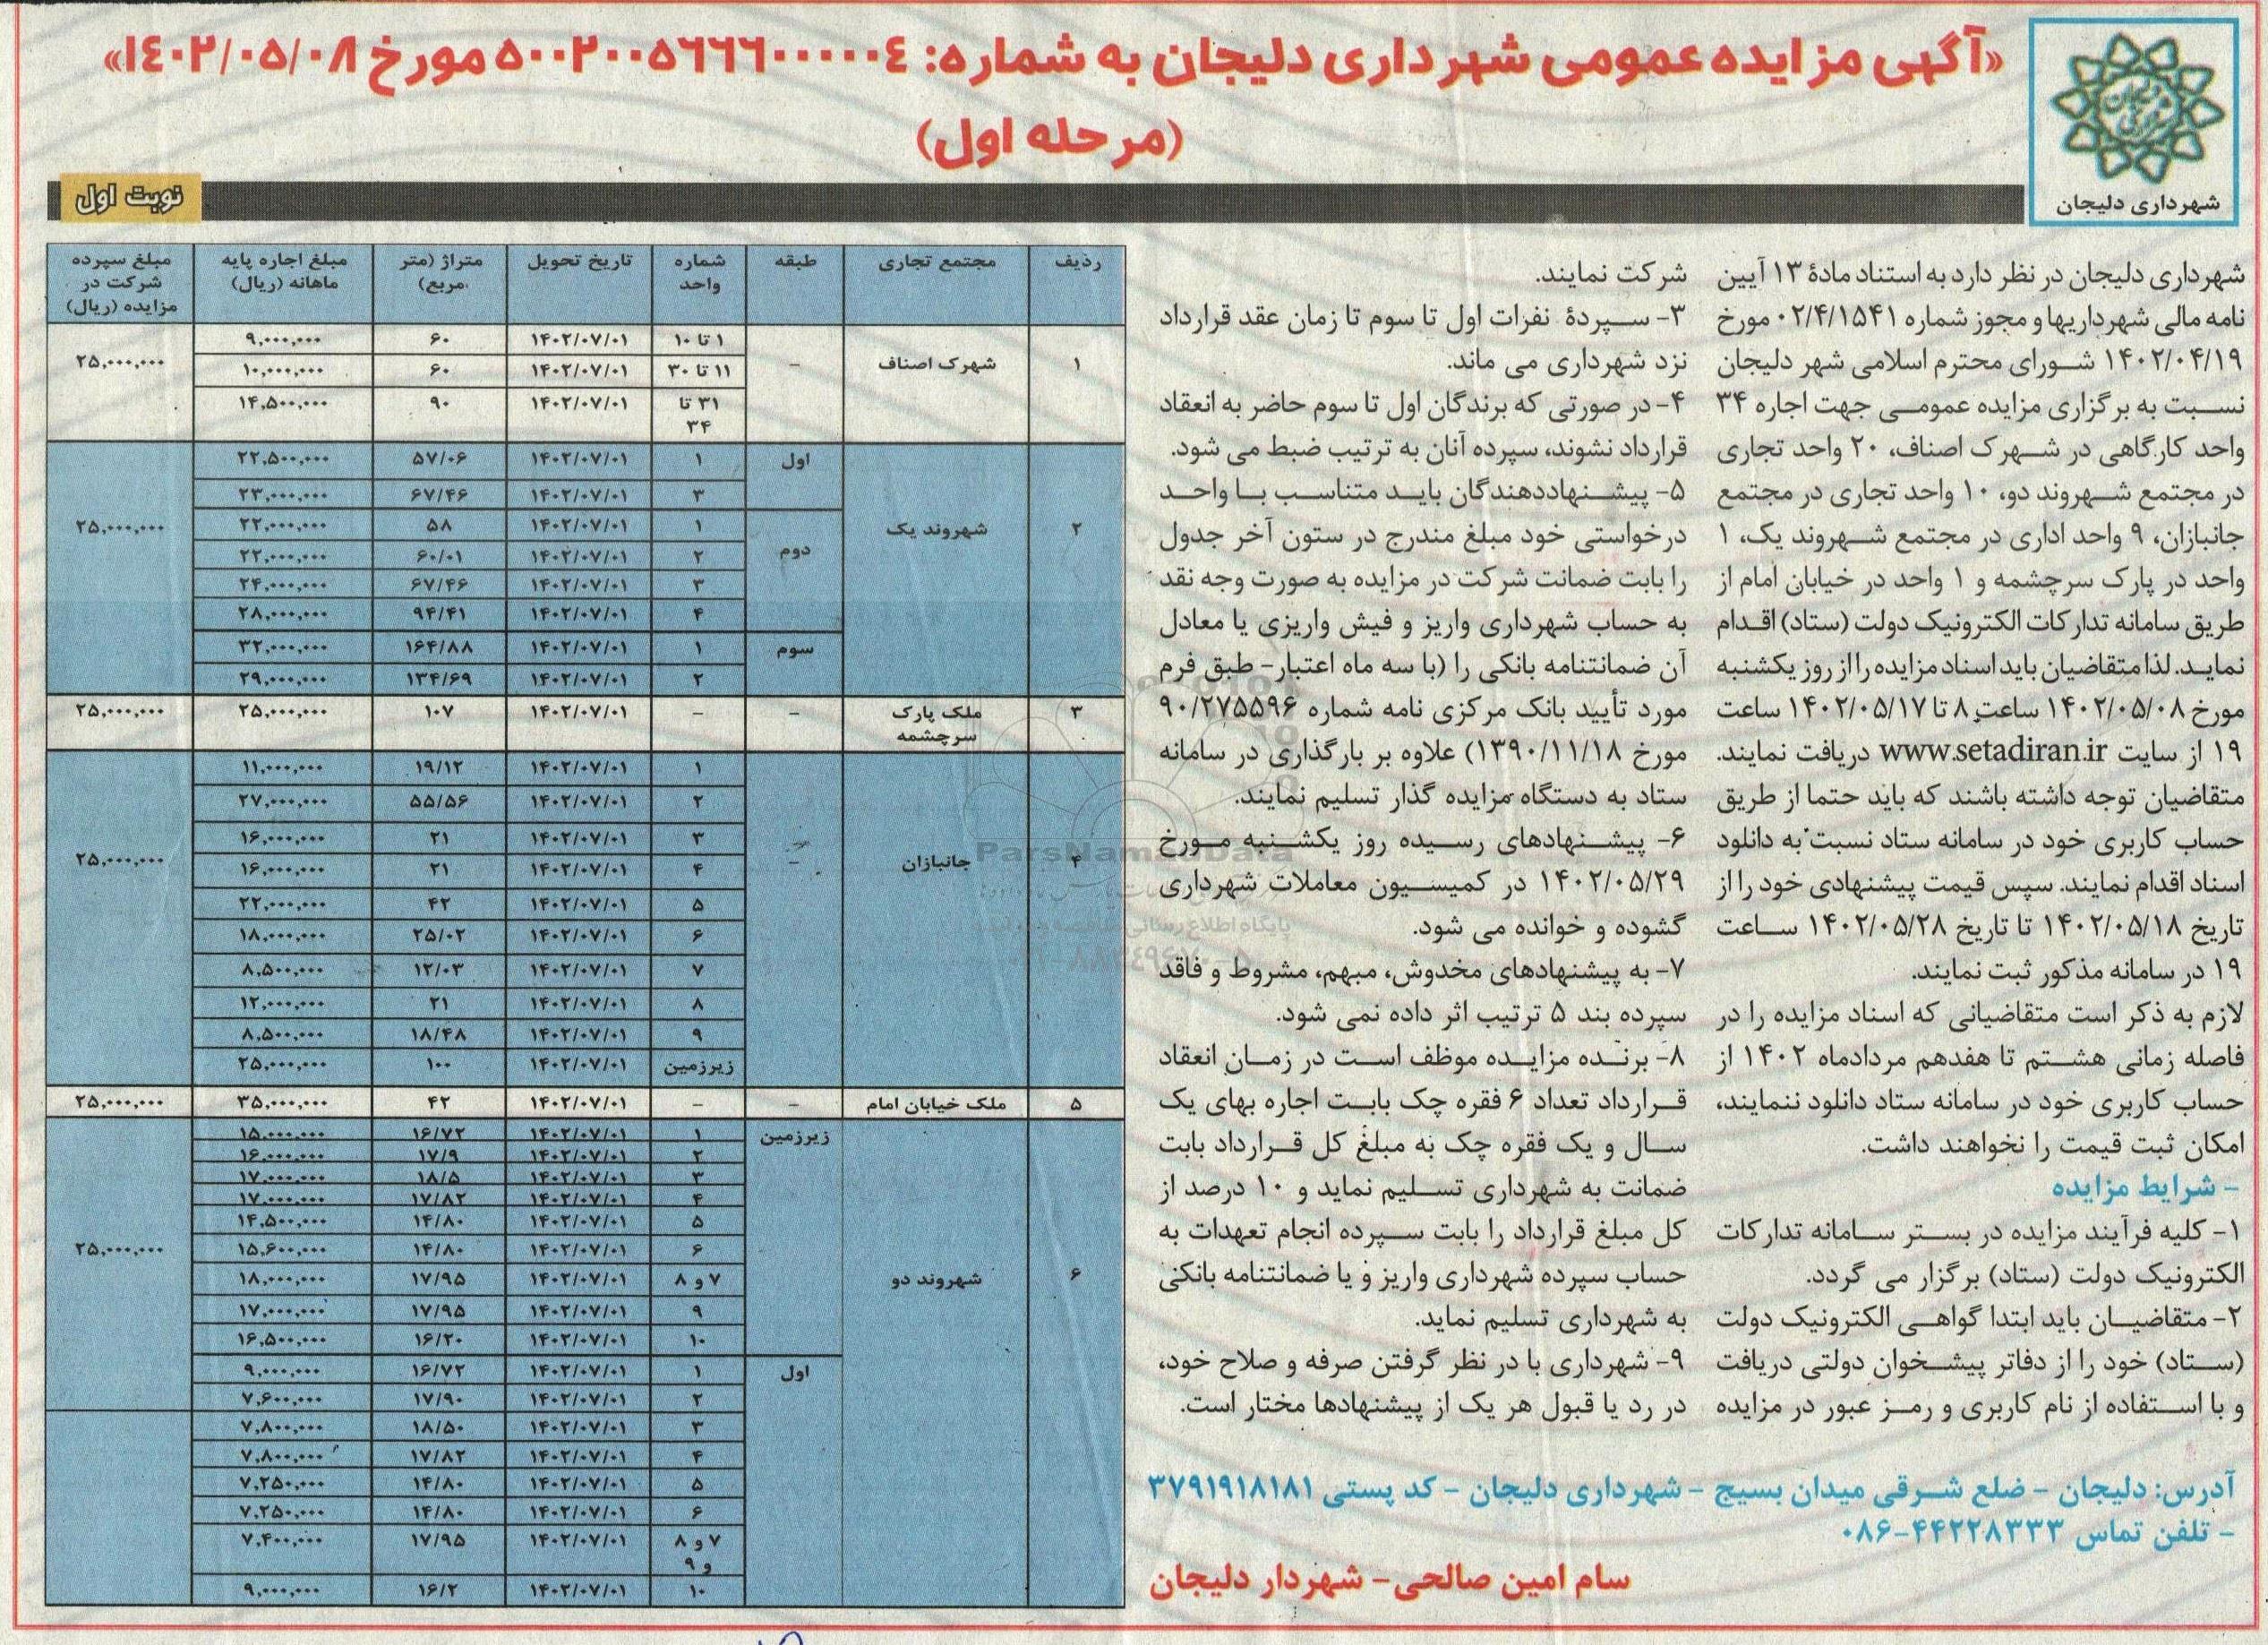 «آگهی مزایده عمومی شهرداری دلیجان به شماره: ۵۰۰۲۰۰۵۶۶۶۰۰۰۰۰۴ مورخ ۱۴۰۲/۰۵/۰۸»
(مرحله اول)
شهرداری دلیجان
نوبت اول
شهرداری دلیجان در نظر دارد به استناد مادهٔ ۱۳ آیین
نامه مالی شهرداریها و مجوز شماره ۰۲/۴/۱۵۴۱ مورخ
۱۴۰۲/۰۴/۱۹ شورای محترم اسلامی شهر دلیجان
نسبت به برگزاری مزایده عمومی جهت اجاره ۳۴
واحد کارگاهی در شهرک اصناف، ۲۰ واحد تجاری
در مجتمع شهروند دو، ۱۰ واحد تجاری در مجتمع
جانبازان، ۹ واحد اداری در مجتمع شهروند یک، ۱
واحد در پارک سرچشمه و ۱ واحد در خیابان امام از
طریق سامانه تدارکات الکترونیک دولت (ستاد) اقدام
نماید. لذا متقاضیان باید اسناد مزایده را از روز یکشنبه
مورخ ۱۴۰۲/۰۵/۰۸ ساعت ۸ تا ۱۴۰۲/۰۵/۱۷ ساعت
۱۹ از سایت www.setadiran.ir دریافت نمایند.
متقاضیان توجه داشته باشند که باید حتما از طریق
حساب کاربری خود در سامانه ستاد نسبت به دانلود
اسناد اقدام نمایند. سپس قیمت پیشنهادی خود را از
تاریخ ۱۴۰۲/۰۵/۱۸ تا تاریخ ۱۴۰۲/۰۵/۲۸ ساعت
۱۹ در سامانه مذکور ثبت نمایند.
لازم به ذکر است متقاضیانی که اسناد مزایده را در
فاصله زمانی هشتم تا هفدهم مردادماه ۱۴۰۲ از
حساب کاربری خود در سامانه ستاد دانلود ننمایند،
امکان ثبت قیمت را نخواهند داشت.
- شرایط مزایده
۱- کلیه فرآیند مزایده در بستر سامانه تدارکات
الکترونیک دولت (ستاد) برگزار می گردد.
۲- متقاضیان باید ابتدا گواهی الکترونیک دولت
(ستاد) خود را از دفاتر پیشخوان دولتی دریافت
و با استفاده از نام کاربری و رمز عبور در مزایده
شرکت نمایند.
۳- سپردهٔ نفرات اول تا سوم تا زمان عقد قرارداد
نزد شهرداری می ماند.
۴- در صورتی که برندگان اول تا سوم حاضر به انعقاد
قرارداد نشوند، سپرده آنان به ترتیب ضبط می شود.
۵- پیشنهاددهندگان باید متناسب با واحد
درخواستی خود مبلغ مندرج در ستون آخر جدول
را بابت ضمانت شرکت در مزایده به صورت وجه نقد
به حساب شهرداری واریز و فیش واریزی یا معادل
آن ضمانتنامه بانکی را (با سه ماه اعتبار- طبق فرم
مورد تأیید بانک مرکزی نامه شماره ۹۰/۲۷۵۵۹۶
مورخ ۱۳۹۰/۱۱/۱۸) علاوه بر بارگذاری در سامانه
ستاد به دستگاه مزایده گذار تسلیم نمایند.
۶- پیشنهادهای رسیده روز یکشنبه مورخ
۱۴۰۲/۰۵/۲۹ در کمیسیون معاملات شهرداری
گشوده و خوانده می شود.
۷- به پیشنهادهای مخدوش، مبهم، مشروط و فاقد
سپرده بند ۵ ترتیب اثر داده نمی شود.
۸- برنده مزایده موظف است در زمان انعقاد
قرارداد تعداد ۶ فقره چک بابت اجاره بهای یک
سال و یک فقره چک به مبلغ کل قرارداد بابت
ضمانت به شهرداری تسلیم نماید و ۱۰ درصد از
کل مبلغ قرارداد را بابت سپرده انجام تعهدات به
حساب سپرده شهرداری واریز و یا ضمانتنامه بانکی
به شهرداری تسلیم نماید.
۹- شهرداری با در نظر گرفتن صرفه و صلاح خود،
در رد یا قبول هر یک از پیشنهادها مختار است.
آدرس: دلیجان - ضلع شرقی میدان بسیج - شهرداری دلیجان - کد پستی ۳۷۹۱۹۱۸۱۸۱
- تلفن تماس ۴۴۲۲۸۳۳۳-۰۸۶
سام امین صالحی- شهردار دلیجان
ردیف مجتمع تجاری طبقه شماره واحد تاریخ تحویل متراژ (متر مربع) مبلغ اجاره پایه ماهانه (ریال) مبلغ سپرده شرکت در مزایده (ریال)
۱ شهرک اصناف - ۱ تا ۱۰ ۱۴۰۲/۰۷/۰۱ ۶۰ ۹,۰۰۰,۰۰۰ ۲۵,۰۰۰,۰۰۰
۱۱ تا ۳۰ ۱۴۰۲/۰۷/۰۱ ۶۰ ۱۰,۰۰۰,۰۰۰
۳۱ تا ۳۴ ۱۴۰۲/۰۷/۰۱ ۹۰ ۱۴,۵۰۰,۰۰۰
۲ شهروند یک اول ۱ ۱۴۰۲/۰۷/۰۱ ۵۷/۰۶ ۲۲,۵۰۰,۰۰۰ ۲۵,۰۰۰,۰۰۰
۳ ۱۴۰۲/۰۷/۰۱ ۶۷/۴۶ ۲۳,۰۰۰,۰۰۰
دوم ۱ ۱۴۰۲/۰۷/۰۱ ۵۸ ۲۲,۰۰۰,۰۰۰
۲ ۱۴۰۲/۰۷/۰۱ ۶۰/۰۱ ۲۲,۰۰۰,۰۰۰
۳ ۱۴۰۲/۰۷/۰۱ ۶۷/۴۶ ۲۴,۰۰۰,۰۰۰
۴ ۱۴۰۲/۰۷/۰۱ ۹۴/۴۱ ۲۸,۰۰۰,۰۰۰
سوم ۱ ۱۴۰۲/۰۷/۰۱ ۱۶۴/۸۸ ۳۲,۰۰۰,۰۰۰
۲ ۱۴۰۲/۰۷/۰۱ ۱۳۴/۶۹ ۲۹,۰۰۰,۰۰۰
۳ ملک پارک سرچشمه - - ۱۴۰۲/۰۷/۰۱ ۱۰۷ ۲۵,۰۰۰,۰۰۰ ۲۵,۰۰۰,۰۰۰
۴ جانبازان - ۱ ۱۴۰۲/۰۷/۰۱ ۱۹/۱۲ ۱۱,۰۰۰,۰۰۰ ۲۵,۰۰۰,۰۰۰
۲ ۱۴۰۲/۰۷/۰۱ ۵۵/۵۶ ۲۷,۰۰۰,۰۰۰
۳ ۱۴۰۲/۰۷/۰۱ ۲۱ ۱۶,۰۰۰,۰۰۰
۴ ۱۴۰۲/۰۷/۰۱ ۲۱ ۱۶,۰۰۰,۰۰۰
۵ ۱۴۰۲/۰۷/۰۱ ۴۲ ۲۲,۰۰۰,۰۰۰
۶ ۱۴۰۲/۰۷/۰۱ ۲۵/۰۲ ۱۸,۰۰۰,۰۰۰
۷ ۱۴۰۲/۰۷/۰۱ ۱۲/۰۳ ۸,۵۰۰,۰۰۰
۸ ۱۴۰۲/۰۷/۰۱ ۲۱ ۱۲,۰۰۰,۰۰۰
۹ ۱۴۰۲/۰۷/۰۱ ۱۸/۴۸ ۸,۵۰۰,۰۰۰
زیرزمین ۱۴۰۲/۰۷/۰۱ ۱۰۰ ۲۵,۰۰۰,۰۰۰
۵ ملک خیابان امام - - ۱۴۰۲/۰۷/۰۱ ۴۲ ۳۵,۰۰۰,۰۰۰ ۲۵,۰۰۰,۰۰۰
۶ شهروند دو زیرزمین ۱ ۱۴۰۲/۰۷/۰۱ ۱۶/۷۲ ۱۵,۰۰۰,۰۰۰ ۲۵,۰۰۰,۰۰۰
۲ ۱۴۰۲/۰۷/۰۱ ۱۷/۹ ۱۶,۰۰۰,۰۰۰
۳ ۱۴۰۲/۰۷/۰۱ ۱۸/۵ ۱۷,۰۰۰,۰۰۰
۴ ۱۴۰۲/۰۷/۰۱ ۱۷/۸۲ ۱۷,۰۰۰,۰۰۰
۵ ۱۴۰۲/۰۷/۰۱ ۱۴/۸۰ ۱۴,۵۰۰,۰۰۰
۶ ۱۴۰۲/۰۷/۰۱ ۱۴/۸۰ ۱۵,۶۰۰,۰۰۰
۷ و ۸ ۱۴۰۲/۰۷/۰۱ ۱۷/۹۵ ۱۸,۰۰۰,۰۰۰
۹ ۱۴۰۲/۰۷/۰۱ ۱۷/۹۵ ۱۷,۰۰۰,۰۰۰
۱۰ ۱۴۰۲/۰۷/۰۱ ۱۶/۲۰ ۱۶,۵۰۰,۰۰۰
اول ۱ ۱۴۰۲/۰۷/۰۱ ۱۶/۷۲ ۹,۰۰۰,۰۰۰
۲ ۱۴۰۲/۰۷/۰۱ ۱۷/۹۰ ۷,۶۰۰,۰۰۰
۳ ۱۴۰۲/۰۷/۰۱ ۱۸/۵۰ ۷,۸۰۰,۰۰۰
۴ ۱۴۰۲/۰۷/۰۱ ۱۷/۸۲ ۷,۸۰۰,۰۰۰
۵ ۱۴۰۲/۰۷/۰۱ ۱۴/۸۰ ۷,۲۵۰,۰۰۰
۶ ۱۴۰۲/۰۷/۰۱ ۱۴/۸۰ ۷,۲۵۰,۰۰۰
۷ و ۸ و ۹ ۱۴۰۲/۰۷/۰۱ ۱۷/۹۵ ۷,۴۰۰,۰۰۰
۱۰ ۱۴۰۲/۰۷/۰۱ ۱۶/۲ ۹,۰۰۰,۰۰۰
ParsNamadData